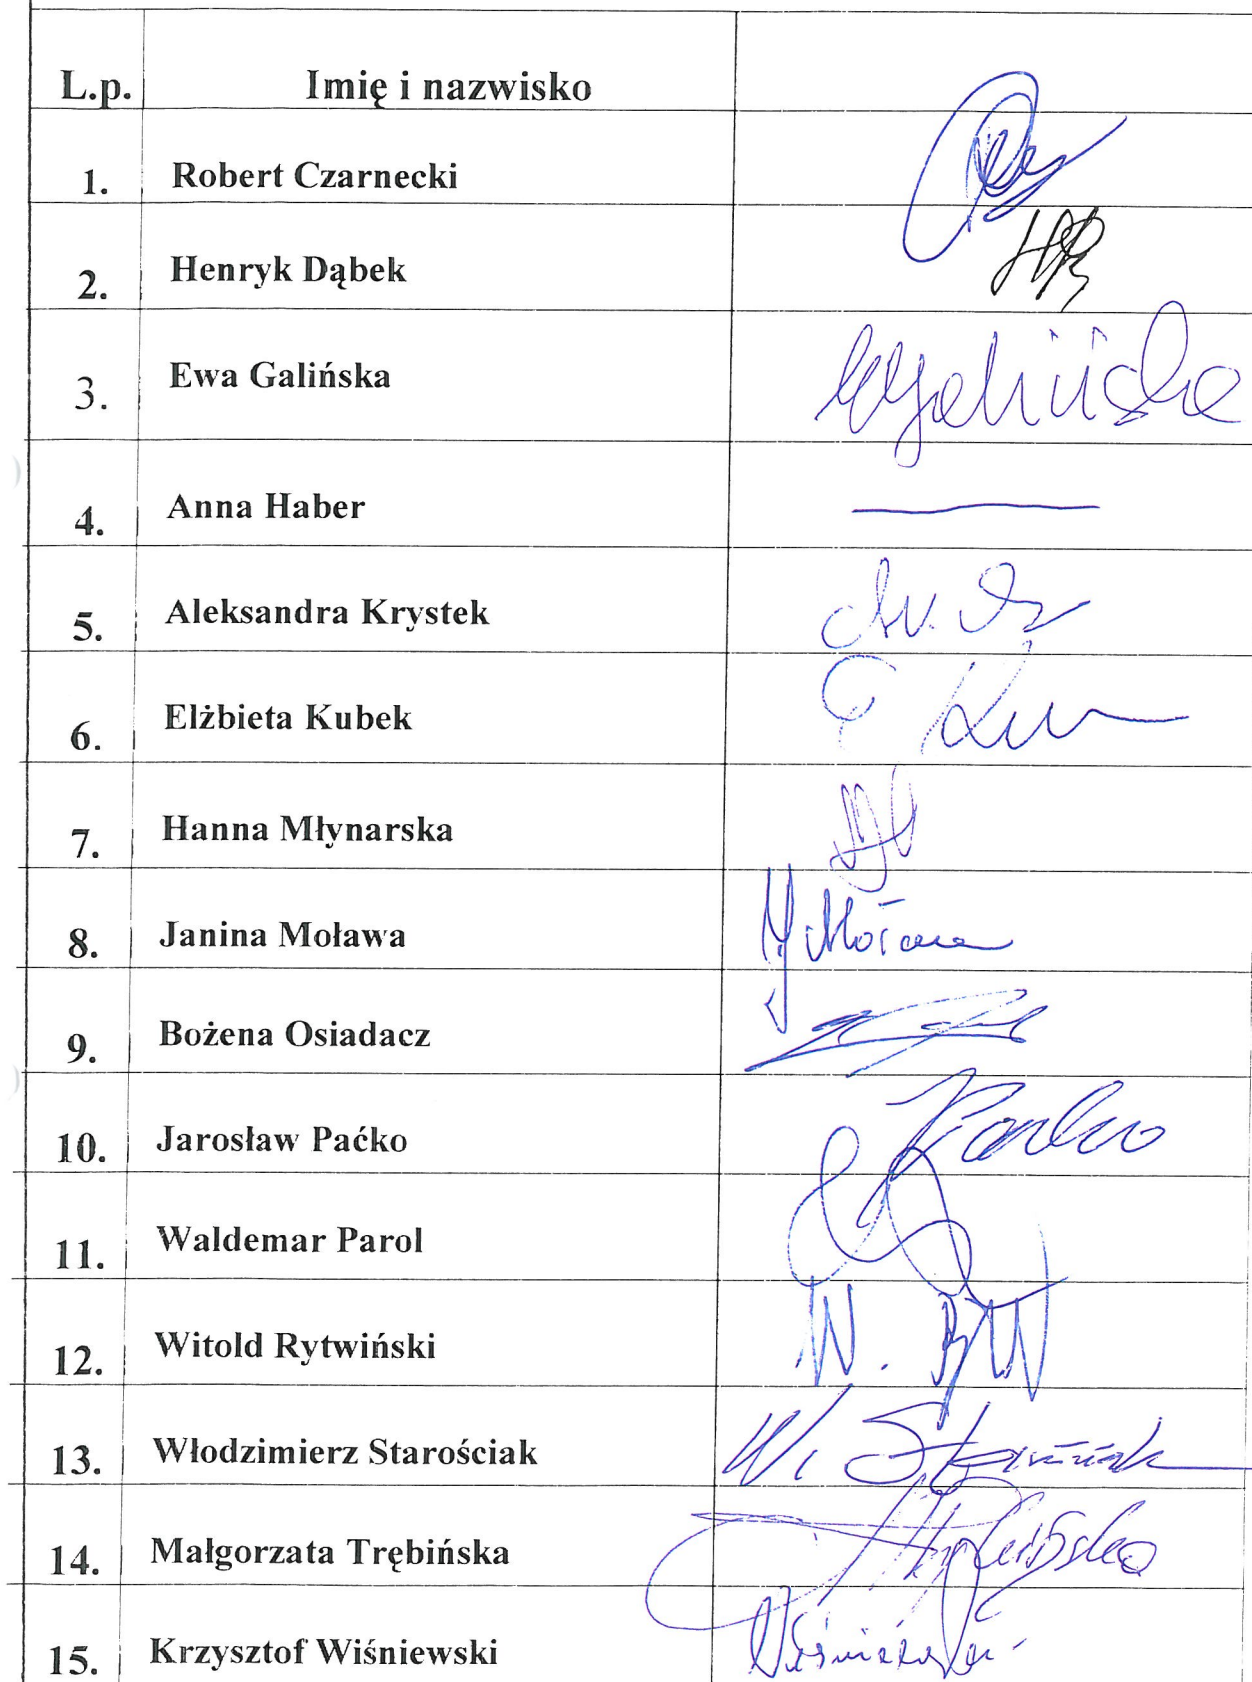 L.p. Imię i nazwisko
1. Robert Czarnecki
2. Henryk Dąbek
3. Ewa Galińska
4. Anna Haber
5. Aleksandra Krystek
6. Elżbieta Kubek
7. Hanna Młynarska
8. Janina Moława
9. Bożena Osiadacz
10. Jarosław Paćko
11. Waldemar Parol
12. Witold Rytwiński
13. Włodzimierz Starościak
14. Małgorzata Trębińska
15. Krzysztof Wiśniewski